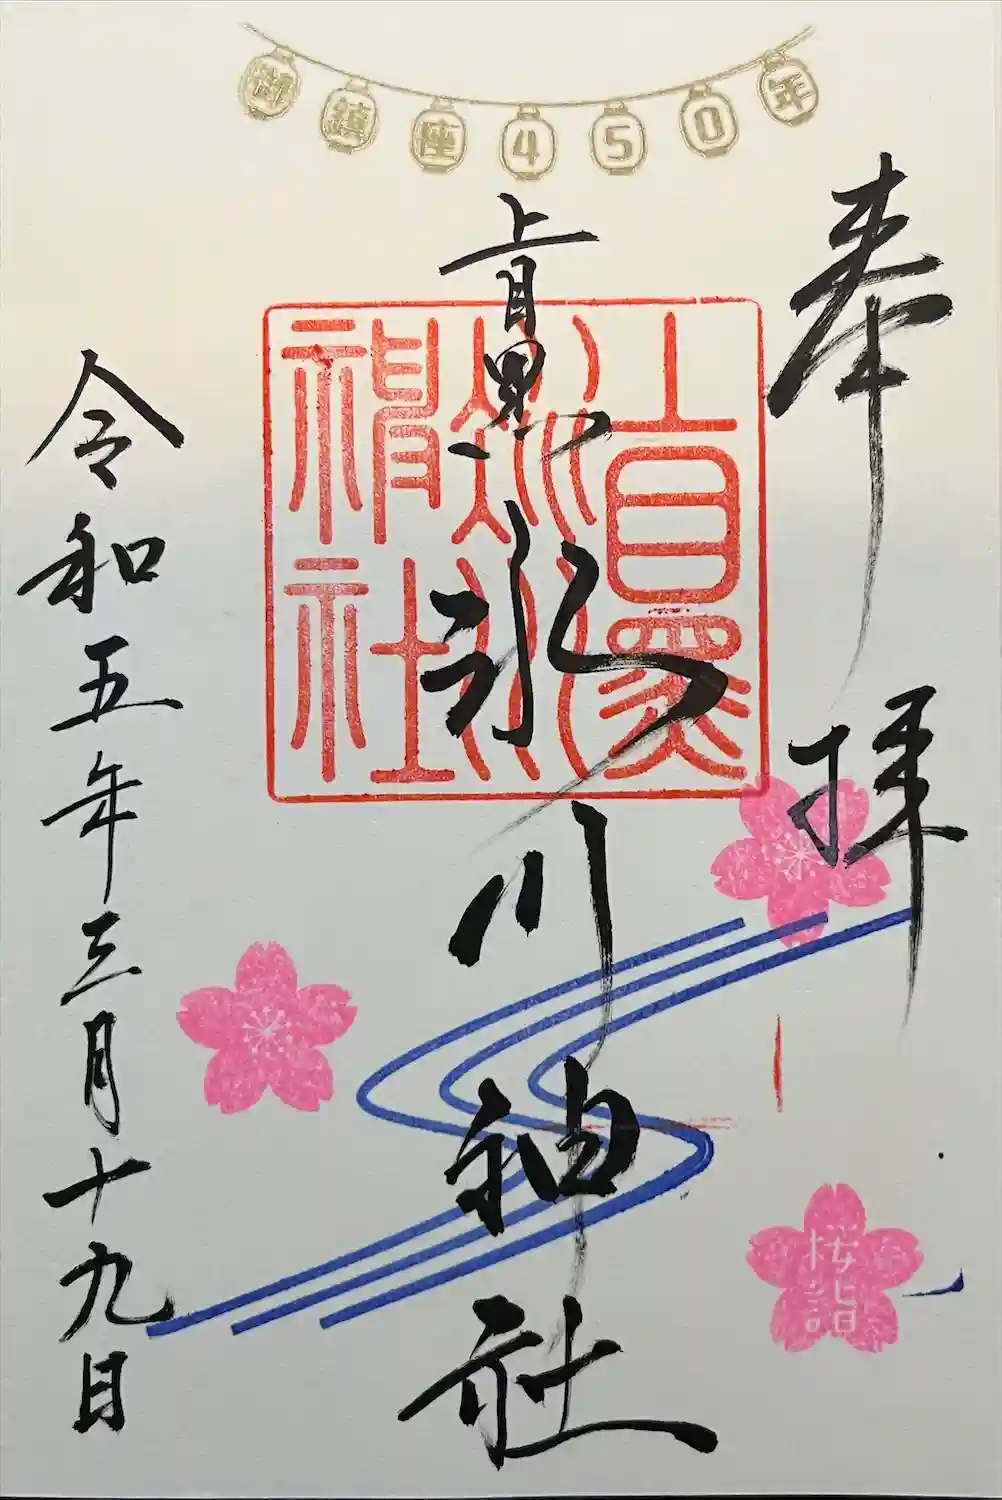 御鎮座450年
奉拝
上目黒氷川神社
上目黒氷川神社
令和五年三月十九日
桜詣